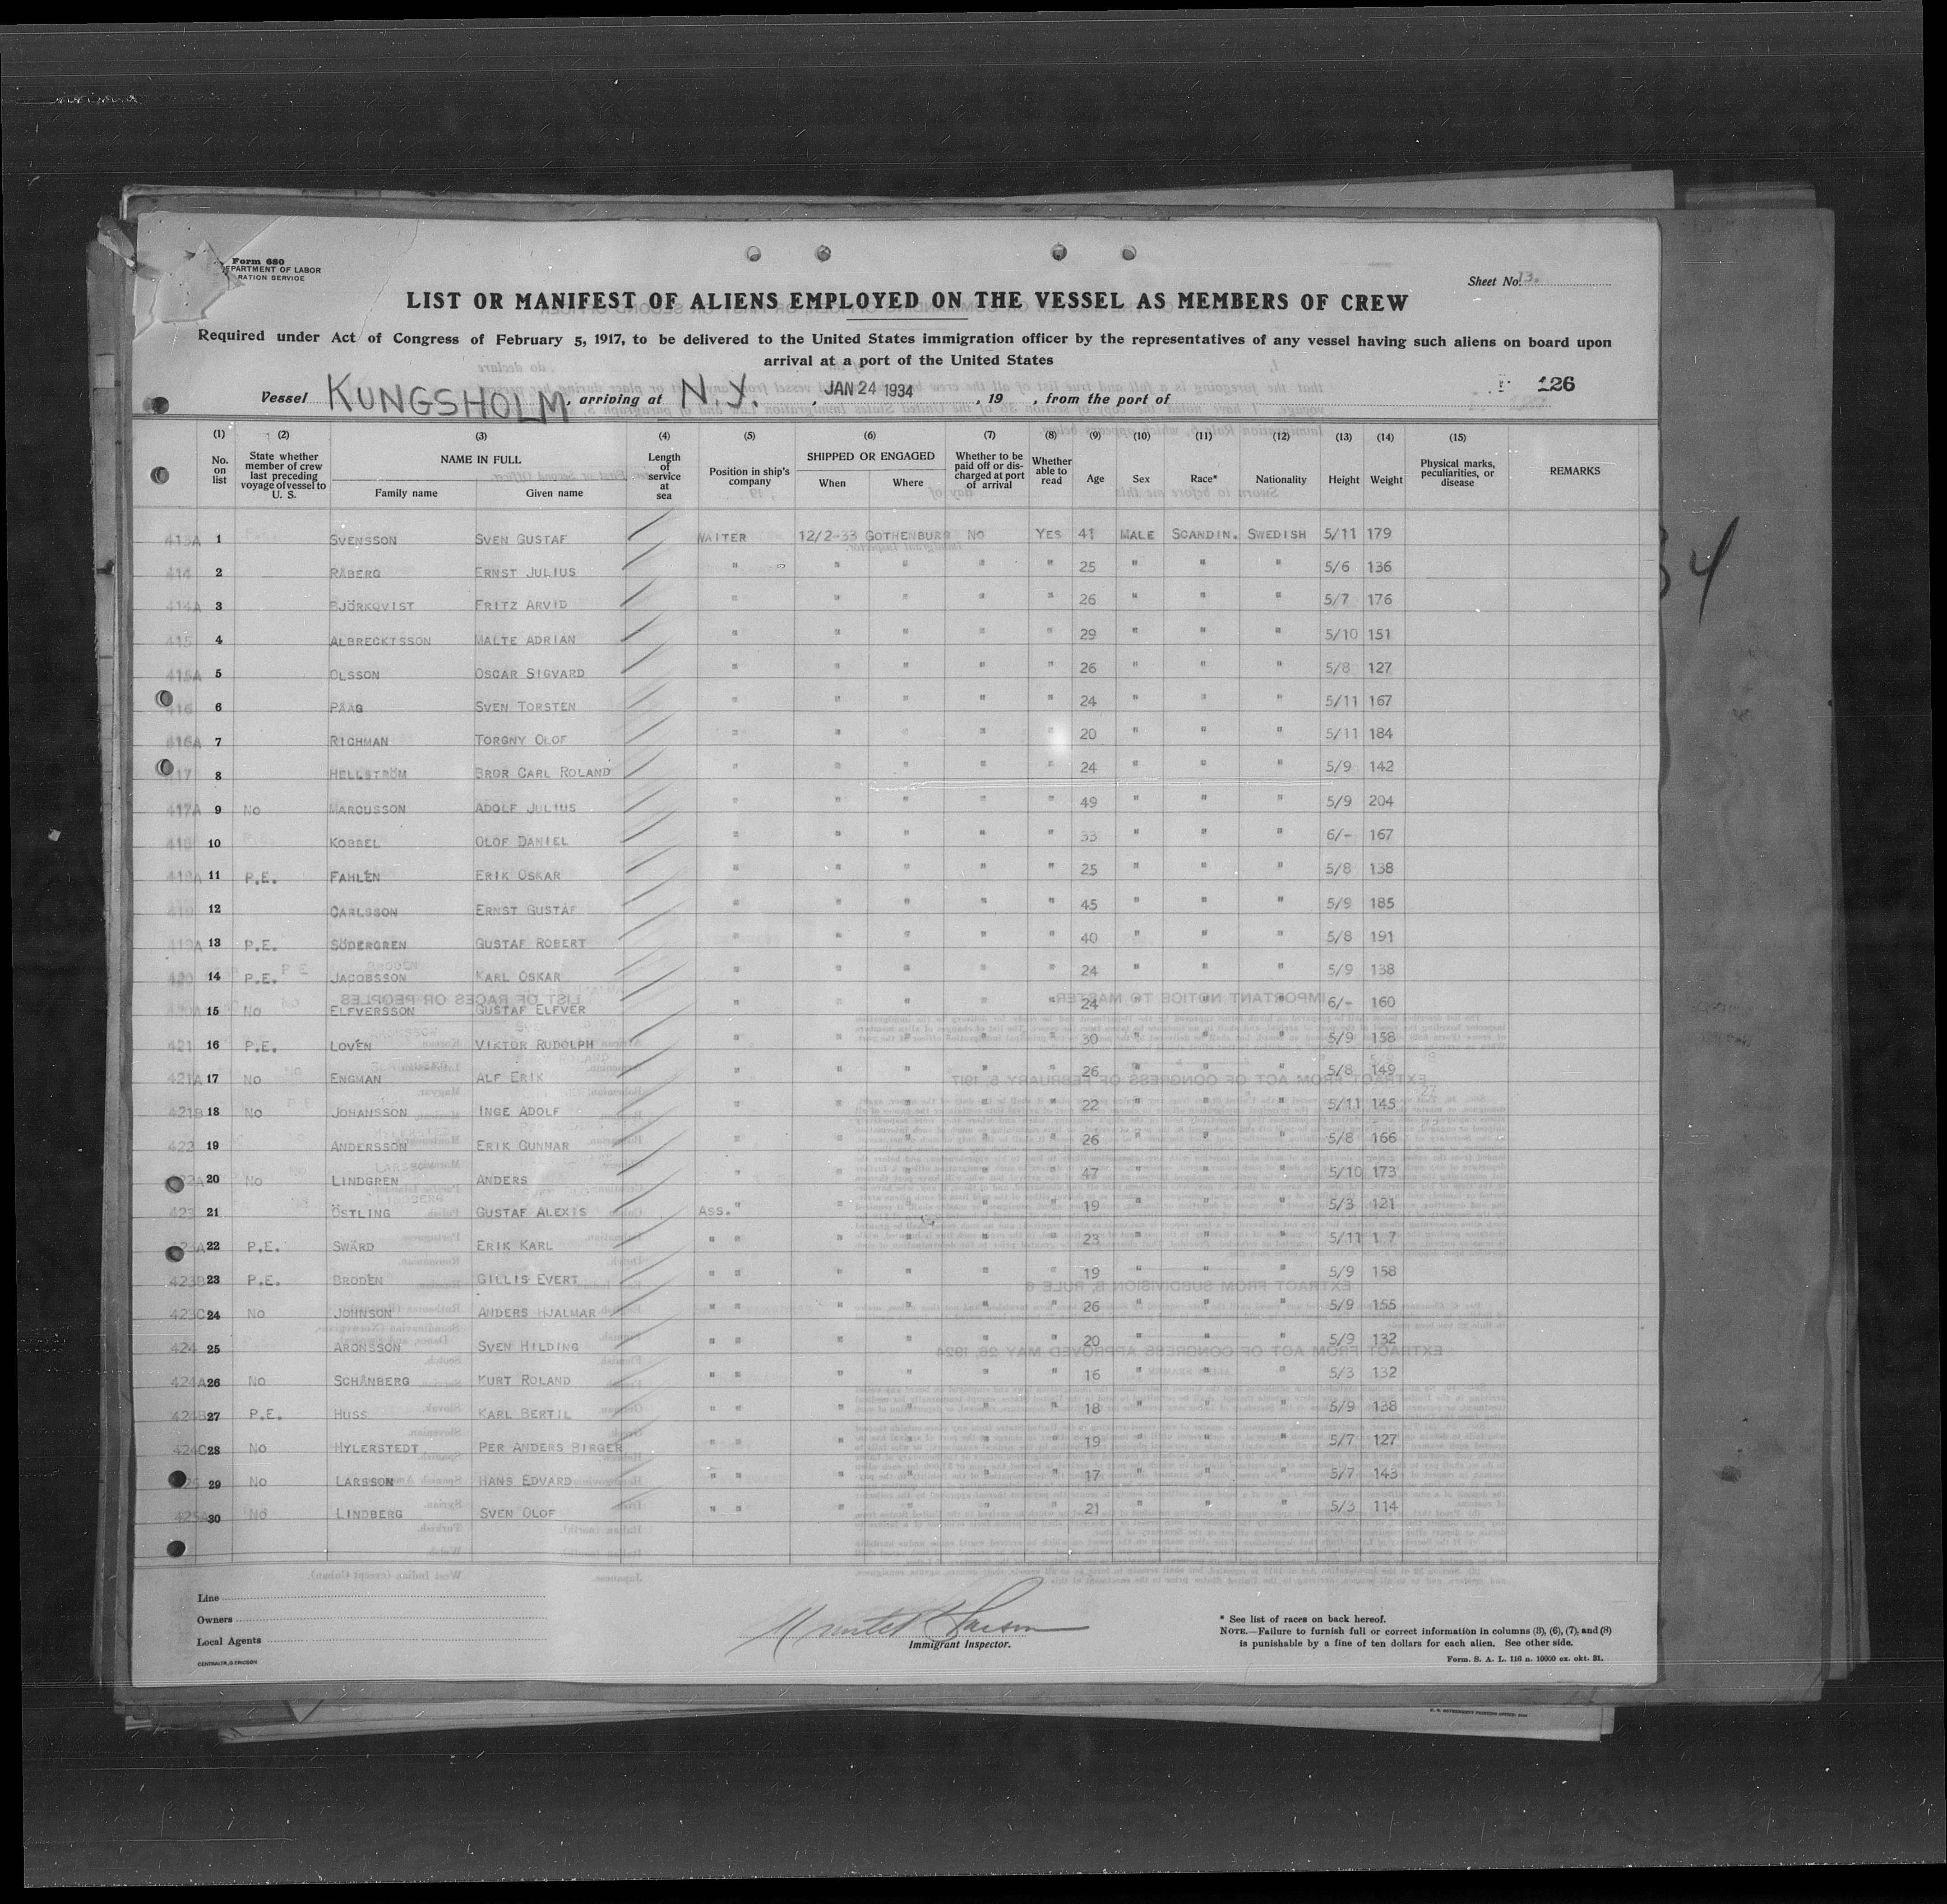 Form 680
EPARTMENT OF LABOR
RATION SERVICE
Sheet No. 13.
LIST OR MANIFEST OF ALIENS EMPLOYED ON THE VESSEL AS MEMBERS OF CREW
Required under Act of Congress of February 5, 1917, to be delivered to the United States immigration officer by the representatives of any vessel having such aliens on board upon
arrival at a port of the United States
Vessel KUNGSHOLM, arriving at N.Y., JAN 24 1934, 19 , from the port of 126
(1) (2) (3) (4) (5) (6) (7) (8) (9) (10) (11) (12) (13) (14) (15)
No. on list State whether member of crew last preceding voyage of vessel to U. S. NAME IN FULL Family name Given name Length of service at sea Position in ship's company SHIPPED OR ENGAGED When Where Whether to be paid off or discharged at port of arrival Whether able to read Age Sex Race* Nationality Height Weight Physical marks, peculiarities, or disease REMARKS
413A 1 SVENSSON SVEN GUSTAF WAITER 12/2-33 GOTHENBURG NO YES 41 MALE SCANDIN. SWEDISH 5/11 179
414 2 RÅBERG ERNST JULIUS " " " " " 25 " " " 5/6 136
414A 3 BJÖRKQVIST FRITZ ARVID " " " " " 26 " " " 5/7 176
415 4 ALBRECKTSSON MALTE ADRIAN " " " " " 29 " " " 5/10 151
415A 5 OLSSON OSCAR SIGVARD " " " " " 26 " " " 5/8 127
416 6 PÅÅG SVEN TORSTEN " " " " " 24 " " " 5/11 167
416A 7 RICHMAN TORGNY OLOF " " " " " 20 " " " 5/11 184
417 8 HELLSTRÖM BROR CARL ROLAND " " " " " 24 " " " 5/9 142
417A 9 NO MARCUSSON ADOLF JULIUS " " " " " 49 " " " 5/9 204
418 10 KOBBEL OLOF DANIEL " " " " " 33 " " " 6/- 167
418A 11 P.E. FAHLÉN ERIK OSKAR " " " " " 25 " " " 5/8 138
419 12 CARLSSON ERNST GUSTAF " " " " " 45 " " " 5/9 185
419A 13 P.E. SÖDERGREN GUSTAF ROBERT " " " " " 40 " " " 5/8 191
420 14 P.E. JACOBSSON KARL OSKAR " " " " " 24 " " " 5/9 138
420A 15 NO ELFVERSSON GUSTAF ELFVER " " " " " 24 " " " 6/- 160
421 16 P.E. LOVÉN VIKTOR RUDOLPH " " " " " 30 " " " 5/9 158
421A 17 NO ENGMAN ALF ERIK " " " " " 26 " " " 5/8 149
421B 18 NO JOHANSSON INGE ADOLF " " " " " 22 " " " 5/11 145
422 19 ANDERSSON ERIK GUNNAR " " " " " 26 " " " 5/8 166
422A 20 NO LINDGREN ANDERS " " " " " 47 " " " 5/10 173
423 21 ÖSTLING GUSTAF ALEXIS ASS. " " " " " 19 " " " 5/3 121
423A 22 P.E. SWÄRD ERIK KARL " " " " " " 23 " " " 5/11
423B 23 P.E. BRODÉN GILLIS EVERT " " " " " " 19 " " " 5/9 158
423C 24 NO JOHNSON ANDERS HJALMAR " " " " " " 26 " " " 5/9 155
424 25 ARONSSON SVEN HILDING " " " " " " 20 " " " 5/9 132
424A 26 NO SCHÅNBERG KURT ROLAND " " " " " " 16 " " " 5/3 132
424B 27 P.E. HUSS KARL BERTIL " " " " " " 18 " " " 5/9 138
424C 28 NO HYLERSTEDT PER ANDERS BIRGER " " " " " " 19 " " " 5/7 127
425 29 NO LARSSON HANS EDVARD " " " " " " 17 " " " 5/7 143
425A 30 NO LINDBERG SVEN OLOF " " " " " " 21 " " " 5/3 114
Line
Owners
Local Agents
Immigrant Inspector.
* See list of races on back hereof.
NOTE.—Failure to furnish full or correct information in columns (3), (6), (7), and (8)
is punishable by a fine of ten dollars for each alien. See other side.
Form. S. A. L. 116 n. 10000 ex. okt. 31.